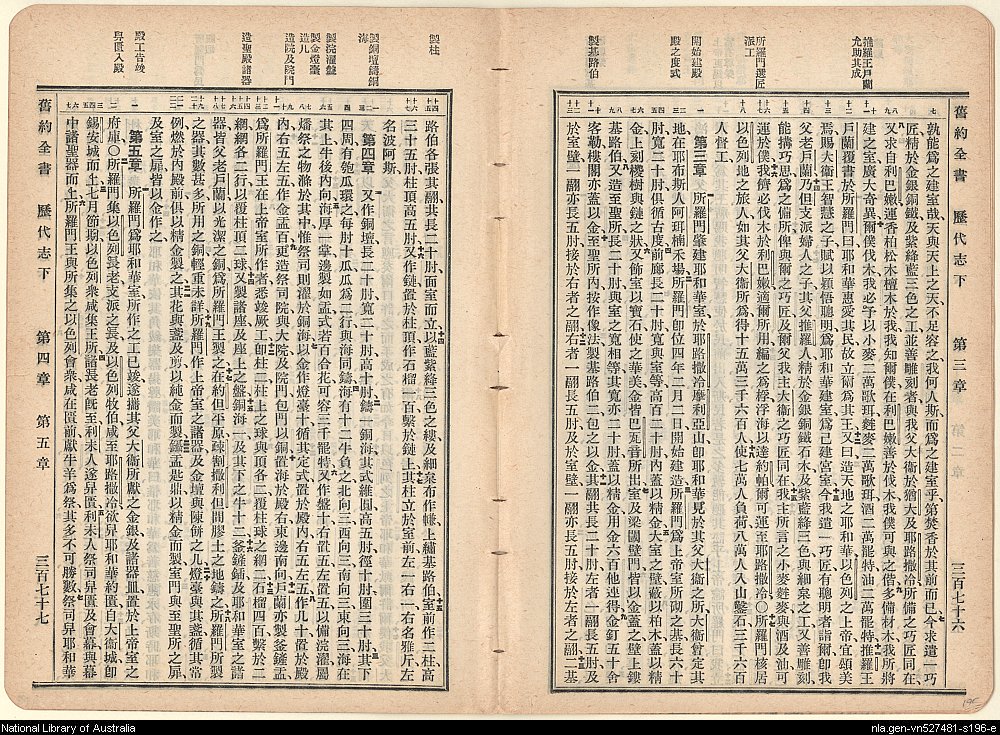 舊約全書 歷代志下 第三章 三百七十六
推羅王戶蘭
允助其成
所羅門選匠
派工
開始建殿
殿之度式
製基路伯
孰能爲之建室哉天與天上之天不足容之我何人斯而爲之建室乎第焚香於其前而已今求遣一巧
匠精於金銀銅鐵及紫絳藍三色之工並善雕刻者與我父大衛於猶大及耶路撒冷所備之巧匠同在
又求自利巴嫩運香柏松木檀木於我我知爾僕在利巴嫩善於伐木我僕可與之偕多備材木我所將
建之室廣大奇異爾僕伐木我必予以小麥二萬歌珥麰麥二萬歌珥酒二萬罷特油二萬罷特推羅王
戶蘭覆書於所羅門曰耶和華惠愛其民故立爾爲其王又曰造天地之耶和華以色列之上帝宜頌美
焉賜大衛王智慧之子賦以穎悟聰明爲耶和華建室爲己國建宮室今我遣一巧匠有聰明者詣爾卽我
父老戶蘭乃但支派婦人之子其父推羅人精於金銀銅鐵石木及紫藍絳三色與細枲之工又善雕刻
能搆巧思爲之備所俾與爾之巧匠及爾父我主大衛之巧匠同在我主所言之小麥麰麥與酒及油可
運於僕我儕必伐木於利巴嫩適爾所用編之爲桴浮海以達約帕爾可運至耶路撒冷〇所羅門核居
以色列地之旅人如其父大衛所爲得十五萬三千六百人使七萬人負荷八萬人入山鑿石三千六百
人督工
第三章 所羅門肇建耶和華室於耶路撒冷摩利亞山卽耶和華見於其父大衛之所大衛曾定其
地在耶布斯人阿珥楠禾場所羅門卽位四年二月二日開始建造所羅門爲上帝室所砌之基長六十
肘寬二十肘俱循古度前廊長二十肘寬與室等高百二十肘內蓋以精金大室之壁蔽以柏木蓋以精
金上刻櫻樹與鏈之狀又飾室以寶石使之華美金皆巴瓦音所出室及梁閾壁門皆蓋以金之壁上鏤
基路伯又造至聖所長二十肘與室之寬相等其寬亦二十肘蓋以精金用金六百他連得金釘五十舍
客勒樓閣亦蓋以金至聖所內按作像法製基路伯二包之以金其翮共長二十肘左者一翮長五肘及
於室壁一翮亦長五肘接於右者之翮右者一翮長五肘及於室壁一翮亦長五肘接於左者之翮二基
舊約全書 歷代志下 第四章 第五章 三百七十七
製柱
製銅壇鑄銅
海
製浣濯盤
製金燈臺
造几
造院及院門
造聖殿諸器
殿工告竣
舁匱入殿
路伯各張其翮共長二十肘面室而立以藍紫絳三色之縷及細枲布作㡘上繡基路伯室前作二柱高
三十五肘柱頂高五肘又作鏈置於柱頂作石榴一百繫於鏈上其柱立於室前左一右一右名雅斤左
名波阿斯
第四章 又作銅壇長二十肘寬二十肘高十肘鑄一銅海其式維圓高五肘徑十肘圍三十肘其下
四周有匏瓜環之每肘十瓜瓜爲二行與海同鑄海有十二牛負之北向三西向三南向三東向三海在
其上牛後內向海厚一掌邊製如盂式若百合花可容三千罷特又作盤十右置五左置五以備浣濯屬
燔祭之物滌於其中惟祭司則濯於銅海以金作燈臺十循其定式置於殿內右五左五作几十置於殿
內右五左五作金盂百更造祭司院與大院及院門包門以銅置海於殿右東邊南向戶蘭亦製釜鏟盂
爲所羅門王在上帝室所作者悉竣厥工卽柱二柱上之球與頂各二覆柱球之網二石榴四百繫於二
網網各二行以覆柱頂二球又製諸座及座上之盤銅海一及其下之牛十二釜鏟鍤及耶和華室之諸
器皆父老戶蘭以光潔之銅爲所羅門王製之在約但平原疎割撒利但間膠土之地鑄之所羅門所製
之器其數甚多所用之銅輕重未詳所羅門作上帝室之諸器及金壇與陳餅之几燈臺與其盞循其常
例燃於內殿前俱以精金製之其花與盞及剪以純金而製鑷盂匙鼎以精金而製室門與至聖所之扉
及室之扉皆以金作之
第五章 所羅門爲耶和華室所作之工已竣遂攜其父大衛所獻之金銀及諸器皿置於上帝室之
府庫〇所羅門集以色列長老支派之長及以色列牧伯咸至耶路撒冷欲舁耶和華約匱自大衛城卽
錫安城而上七月節期以色列衆咸集王所諸長老旣至利未人遂舁匱利未人祭司舁匱及會幕與幕
中諸聖器而上所羅門王與所集之以色列會衆咸在匱前獻牛羊爲祭其多不可勝數祭司舁耶和華
National Library of Australia
nla.gen-vn527481-s196-e